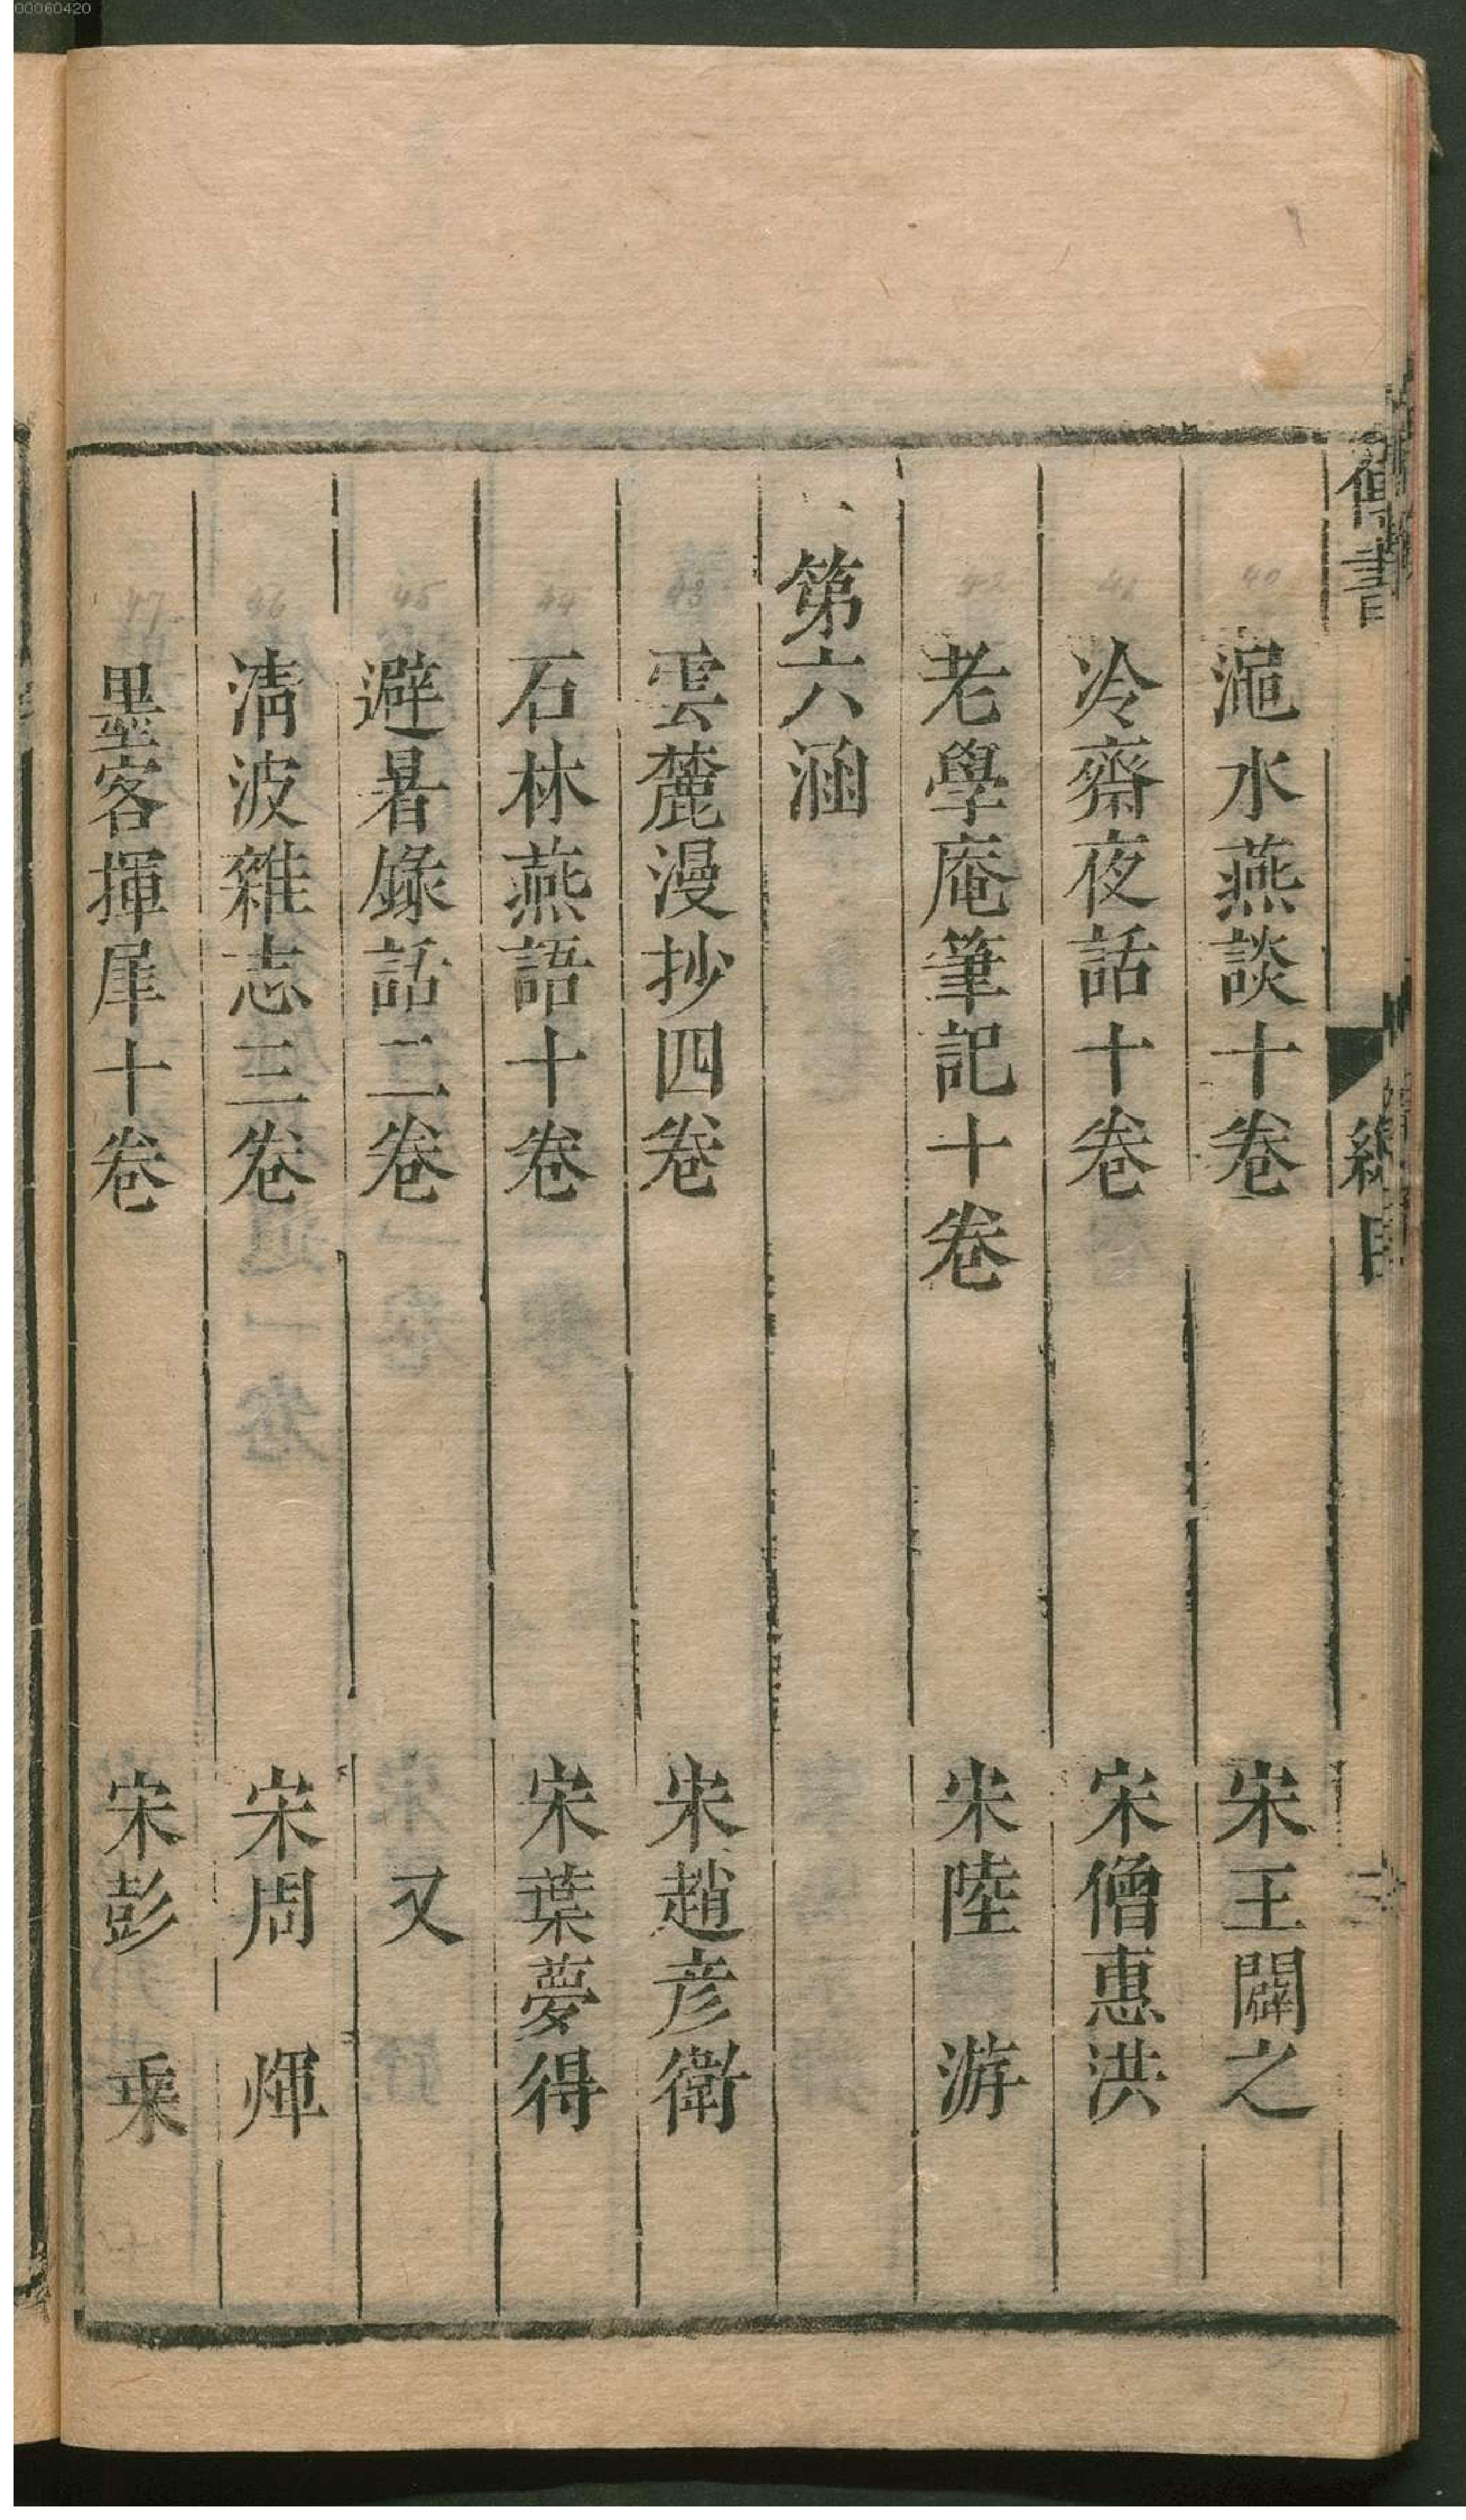 00060420
澠水燕談十卷 宋王闢之
冷齋夜話十卷 宋僧惠洪
老學庵筆記十卷 宋陸游
第六涵
雲麓漫抄四卷 宋趙彦衛
石林燕語十卷 宋葉夢得
避暑錄話二卷 又
清波雜志三卷 宋周煇
墨客揮犀十卷 宋彭乘
40
41
42
43
44
45
46
47